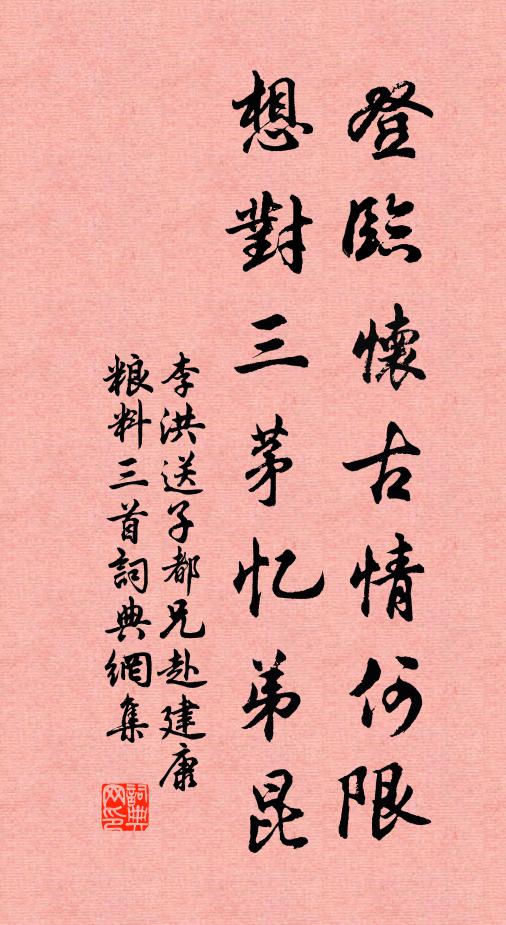 登臨懷古情何限
想對三茅忆弟昆
李洪送子都兄赴建康
粮料三首詞典網集
詞典
网印